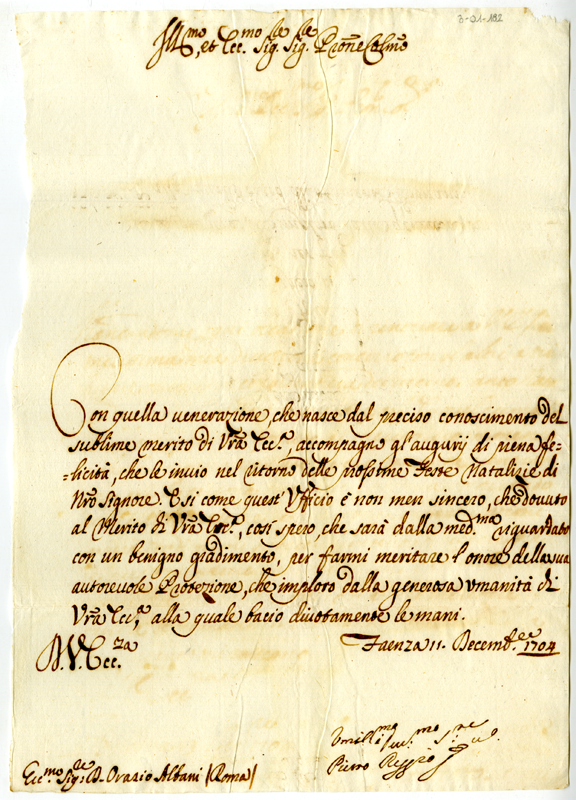 3-01-182
Ill.mo, et Ecc.mo Sig.le Sig.le Pron̄e Col̄mo
Con quella uenerazione, che nasce dal preciso conoscimento del
sublime merito di Vr̄a Ecc.ª, accompagno gl'augurij di piena fe=
=licità, che le inuio nel ritorno delle prossime Feste Natalizie di
Nr̄o Signore. E si come quest' Vfficio è non men sincero, che douuto
al Merito di Vr̄a Ecc.ª, così spero, che sarà dalla med.ma riguardato
con un benigno gradimento, per farmi meritare l'onore della sua
autoreuole Protezione, che imploro dalla generosa vmanità di
Vr̄a Ecc.ª alla quale bacio diuotamente le mani.
D. V. Ecc.za
Faenza 11. Decemb.ee 1704
Vmill.mo
Pietro
Ecc.mo Sig.le D. Orazio Albani (Roma)